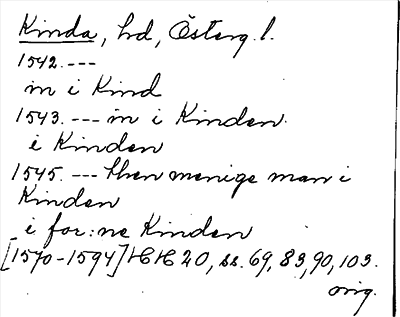 Kinda, hd, Österg. l.
1542. ---
in i Kind
1543. --- in i Kinden.
i Kinden
1545. --- then menige man i
Kinden
i for:ne Kinden
[1570-1594] HH 20, ss. 69, 83, 90, 103.
orig.